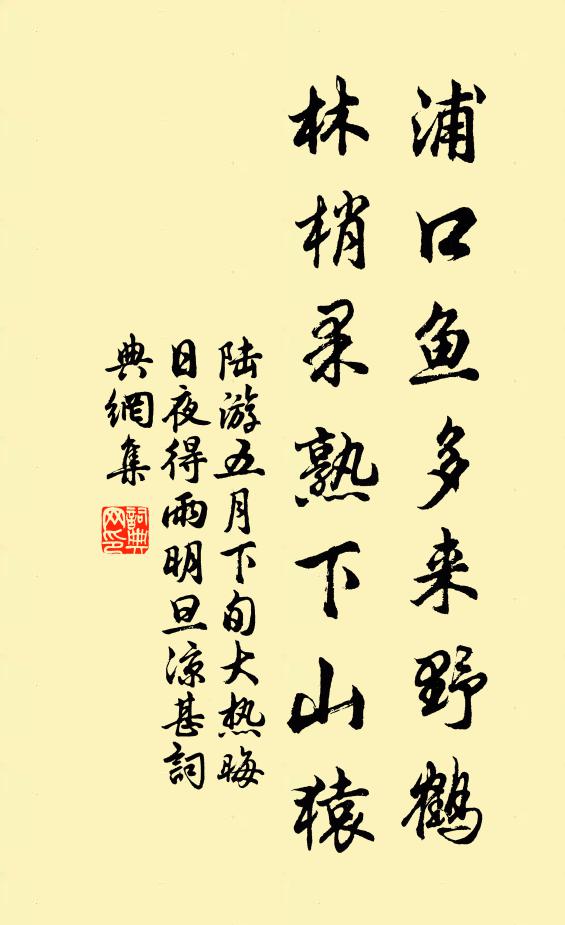 浦口鱼多来野鹤
林梢果熟下山猿
陆游五月下旬大热晦
日夜得雨明旦凉甚詞
典網集
詞典
网印